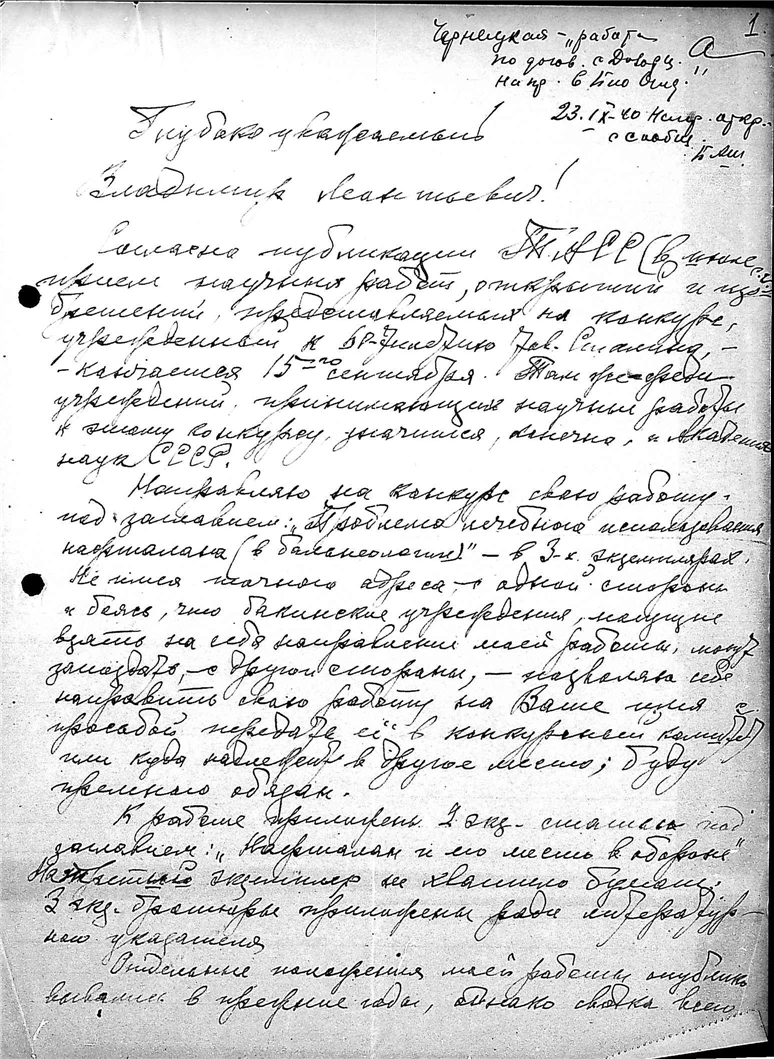 1.
Чернецкая - "работа
по догов. с Доворц.
напр. в Био Отд."
23.IX-40
с сообщ.
Глубокоуважаемый
Владимир Леонтьевич!
Согласно публикации ТАСС (в июле с.г.)
прием научных работ, открытий и изо-
бретений, представляемых на конкурс,
учрежденный к 60-тилетию тов. Сталина, -
- кончается 15-го сентября. Там же среди
учреждений, принимающих научные работы
к этому конкурсу, значится, конечно, и Академия
наук СССР.
Направляю на конкурс свою работу
под заглавием: "Проблема лечебного использования
нафталана (в бальнеологии)" - в 3-х экземплярах.
Не имея точного адреса, - с одной стороны
и боясь, что бакинские учреждения, могущие
взять на себя направление моей работы, могут
запоздать, - с другой стороны, - позволяю себе
направить свою работу на Ваше имя с
просьбой передать её в конкурсный комитет
или куда надлежит в другое место; буду
премного обязан.
К работе приложены 2 экз. статьи под
заглавием: "Нафталан и его место в обороне"
На третий экземпляр не хватило бумаги;
3 экз. брошюры приложены ради литератур-
ного указателя
Отдельные положения моей работы опублико
вывались в прежние годы, однако сводка всего